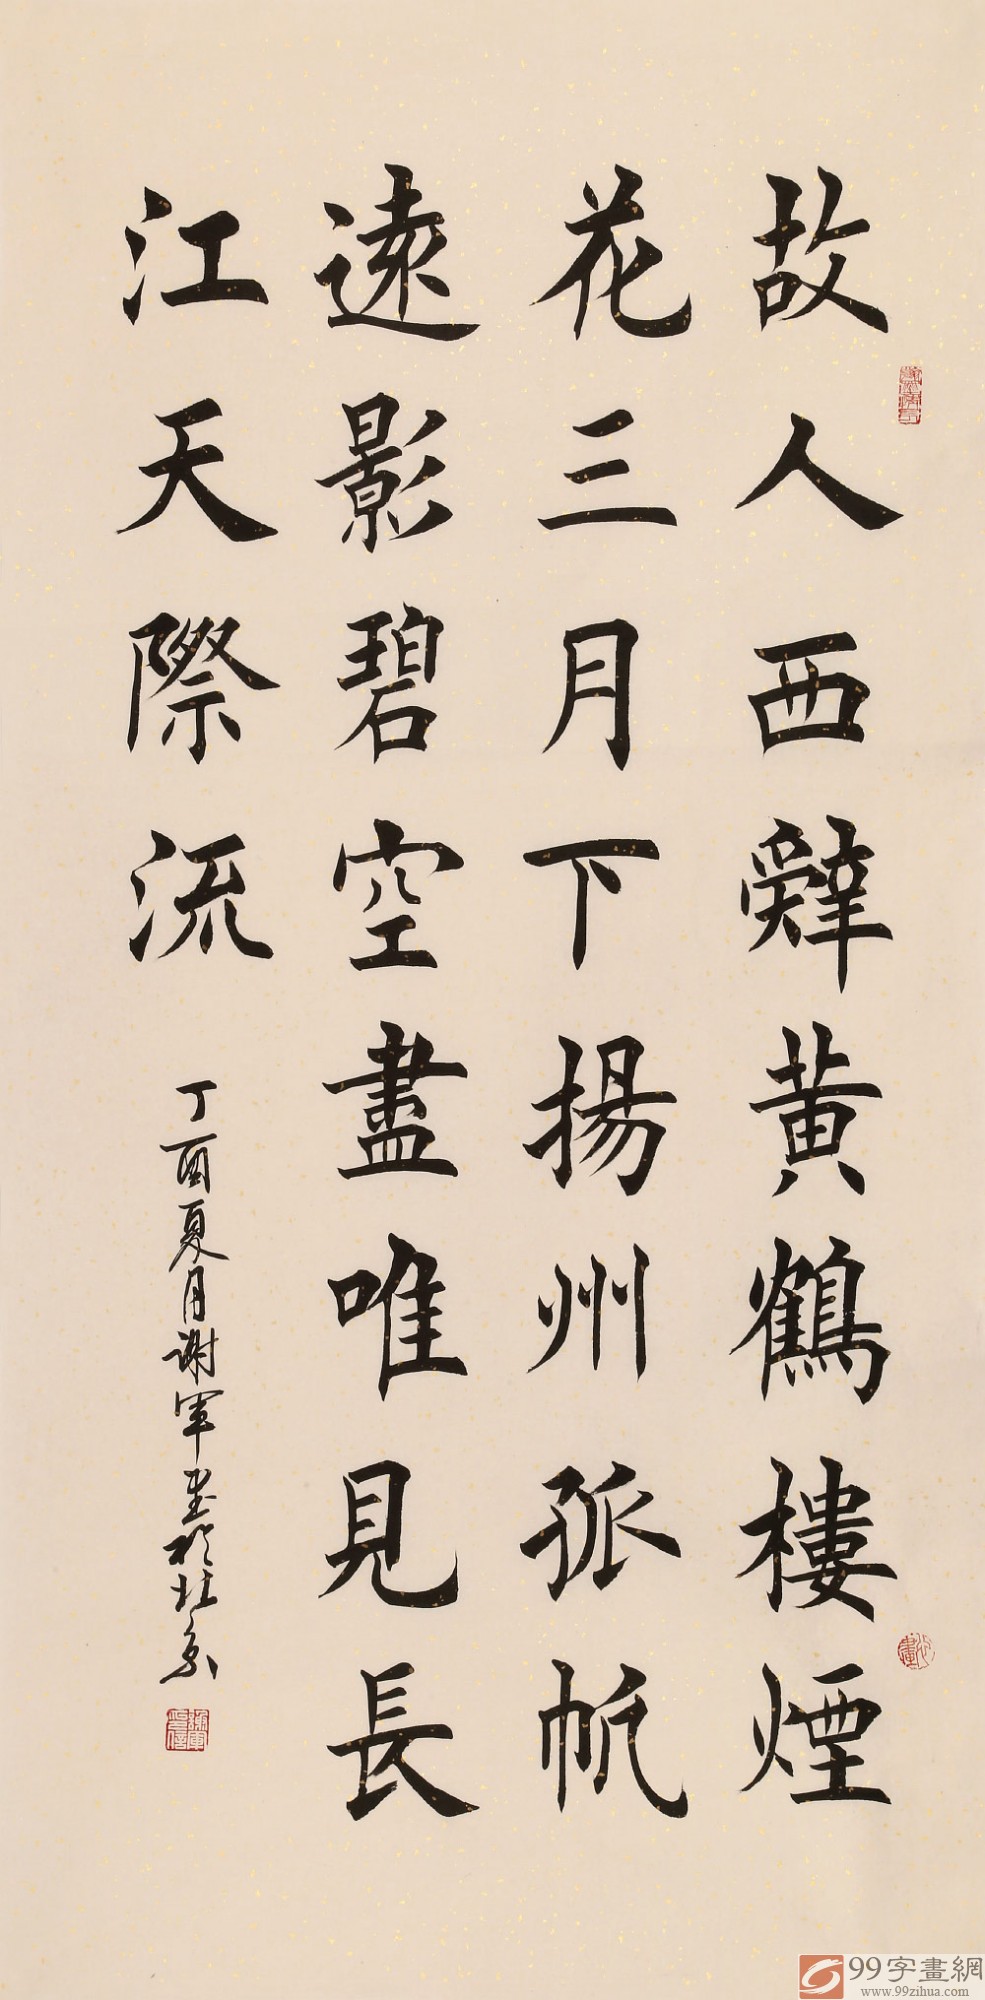 故人西辤黄鶴樓煙
花三月下揚州孤帆
遠影碧空盡唯見長
江天際流
丁酉夏月谢軍書於北京
99字畫網
www.99zihua.com